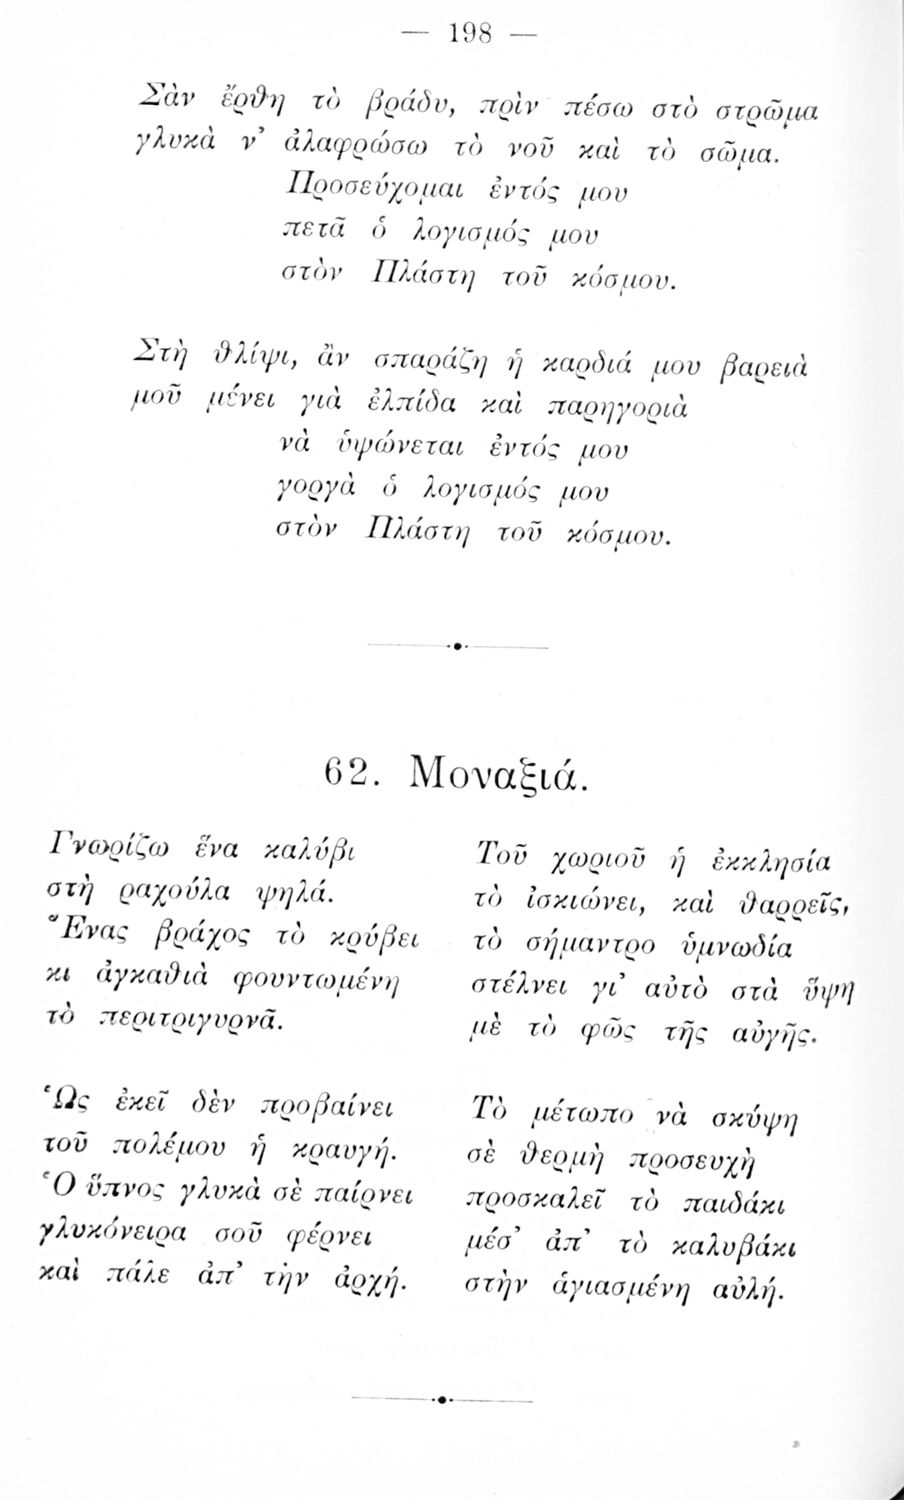 — 198 —
Σὰν ἔρθη τὸ βράδυ, πρὶν πέσω στὸ στρῶμα
γλυκὰ ν’ ἀλαφρώσω τὸ νοῦ καὶ τὸ σῶμα.
Προσεύχομαι ἐντός μου
πετᾶ ὁ λογισμός μου
στὸν Πλάστη τοῦ κόσμου.
Στὴ θλίψι, ἂν σπαράζη ἡ καρδιά μου βαρειὰ
μοῦ μένει γιὰ ἐλπίδα καὶ παρηγοριὰ
νὰ ὑψώνεται ἐντός μου
γοργὰ ὁ λογισμός μου
στὸν Πλάστη τοῦ κόσμου.
62. Μοναξιά.
Γνωρίζω ἕνα καλύβι
στὴ ραχούλα ψηλά.
Ἕνας βράχος τὸ κρύβει
κι ἀγκαθιὰ φουντωμένη
τὸ περιτριγυρνᾶ.
Ὡς ἐκεῖ δὲν προβαίνει
τοῦ πολέμου ἡ κραυγή.
Ὁ ὕπνος γλυκὰ σὲ παίρνει
γλυκόνειρα σοῦ φέρνει
καὶ πάλε ἀπ’ τὴν ἀρχή.
Τοῦ χωριοῦ ἡ ἐκκλησία
τὸ ἰσκιώνει, καὶ θαρρεῖς,
τὸ σήμαντρο ὑμνωδία
στέλνει γι’ αὐτὸ στὰ ὕψη
μὲ τὸ φῶς τῆς αὐγῆς.
Τὸ μέτωπο νὰ σκύψη
σὲ θερμὴ προσευχὴ
προσκαλεῖ τὸ παιδάκι
μέσ’ ἀπ’ τὸ καλυβάκι
στὴν ἁγιασμένη αὐλή.